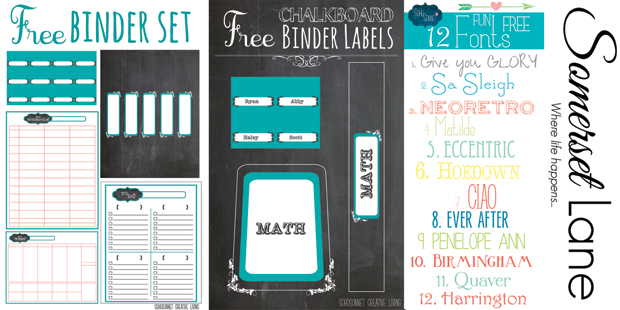 Free BINDER SET
TO DO
SOHOSONNET CREATIVE LIVING
CHALKBOARD
Free BINDER LABELS
Ryan
Abby
Haley
Scott
MATH
MATH
SOHOSONNET CREATIVE LIVING
12 FUN FREE
Fonts
1. Give you GLORY
2. Sa Sleigh
3. NEORETRO
4. Matilde
5. ECCENTRIC
6. HOEDOWN
7. CIAO
8. EVER AFTER
9. PENELOPE ANN
10. BIRMINGHAM
11. Quaver
12. Harrington
Somerset Lane
Where life happens..